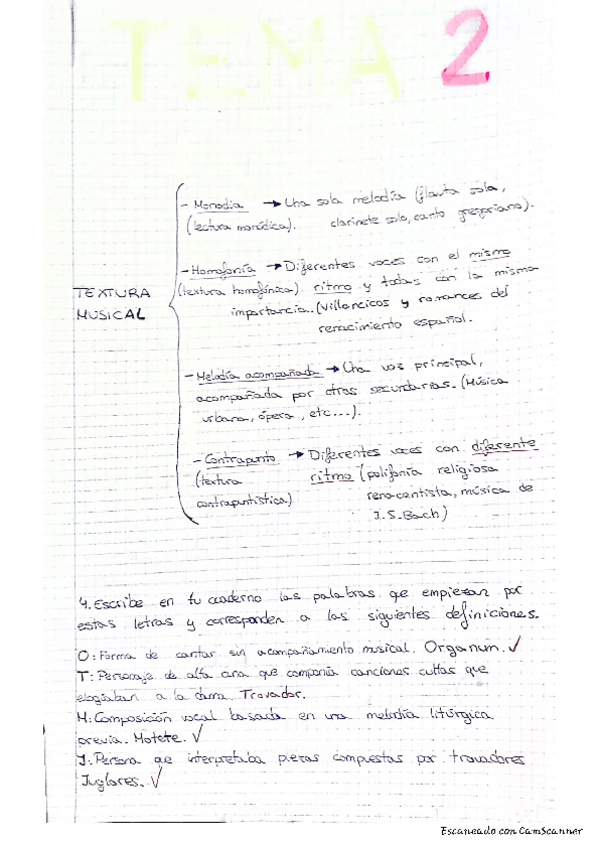 TEMA 2
TEXTURA
MUSICAL
- Monodia → Una sola melodía (flauta sola,
(lectura monódica). clarinete solo, canto gregoriano).
- Homofonía → Diferentes voces con el mismo
(textura homofónica) ritmo y todas con la misma
importancia. (Villancicos y romances del
renacimiento español.
- Melodía acompañada → Una voz principal,
acompañada por otras secundarias. (Música
urbana, ópera, etc...).
- Contrapunto → Diferentes voces con diferente
(textura ritmo (polifonía religiosa
contrapuntística) renacentista, música de
J.S.Bach)
4. Escribe en tu cuaderno las palabras que empiezan por
estas letras y corresponden a las siguientes definiciones.
O: Forma de cantar sin acompañamiento musical. Organun. ✓
T: Personaje de alta cuna que componía canciones cultas que
elogiaban a la dama. Trovador.
M: Composición vocal basada en una melodía litúrgica
previa. Motete. ✓
J: Persona que interpretaba piezas compuestas por trovadores
Juglares. ✓
Escaneado con CamScanner